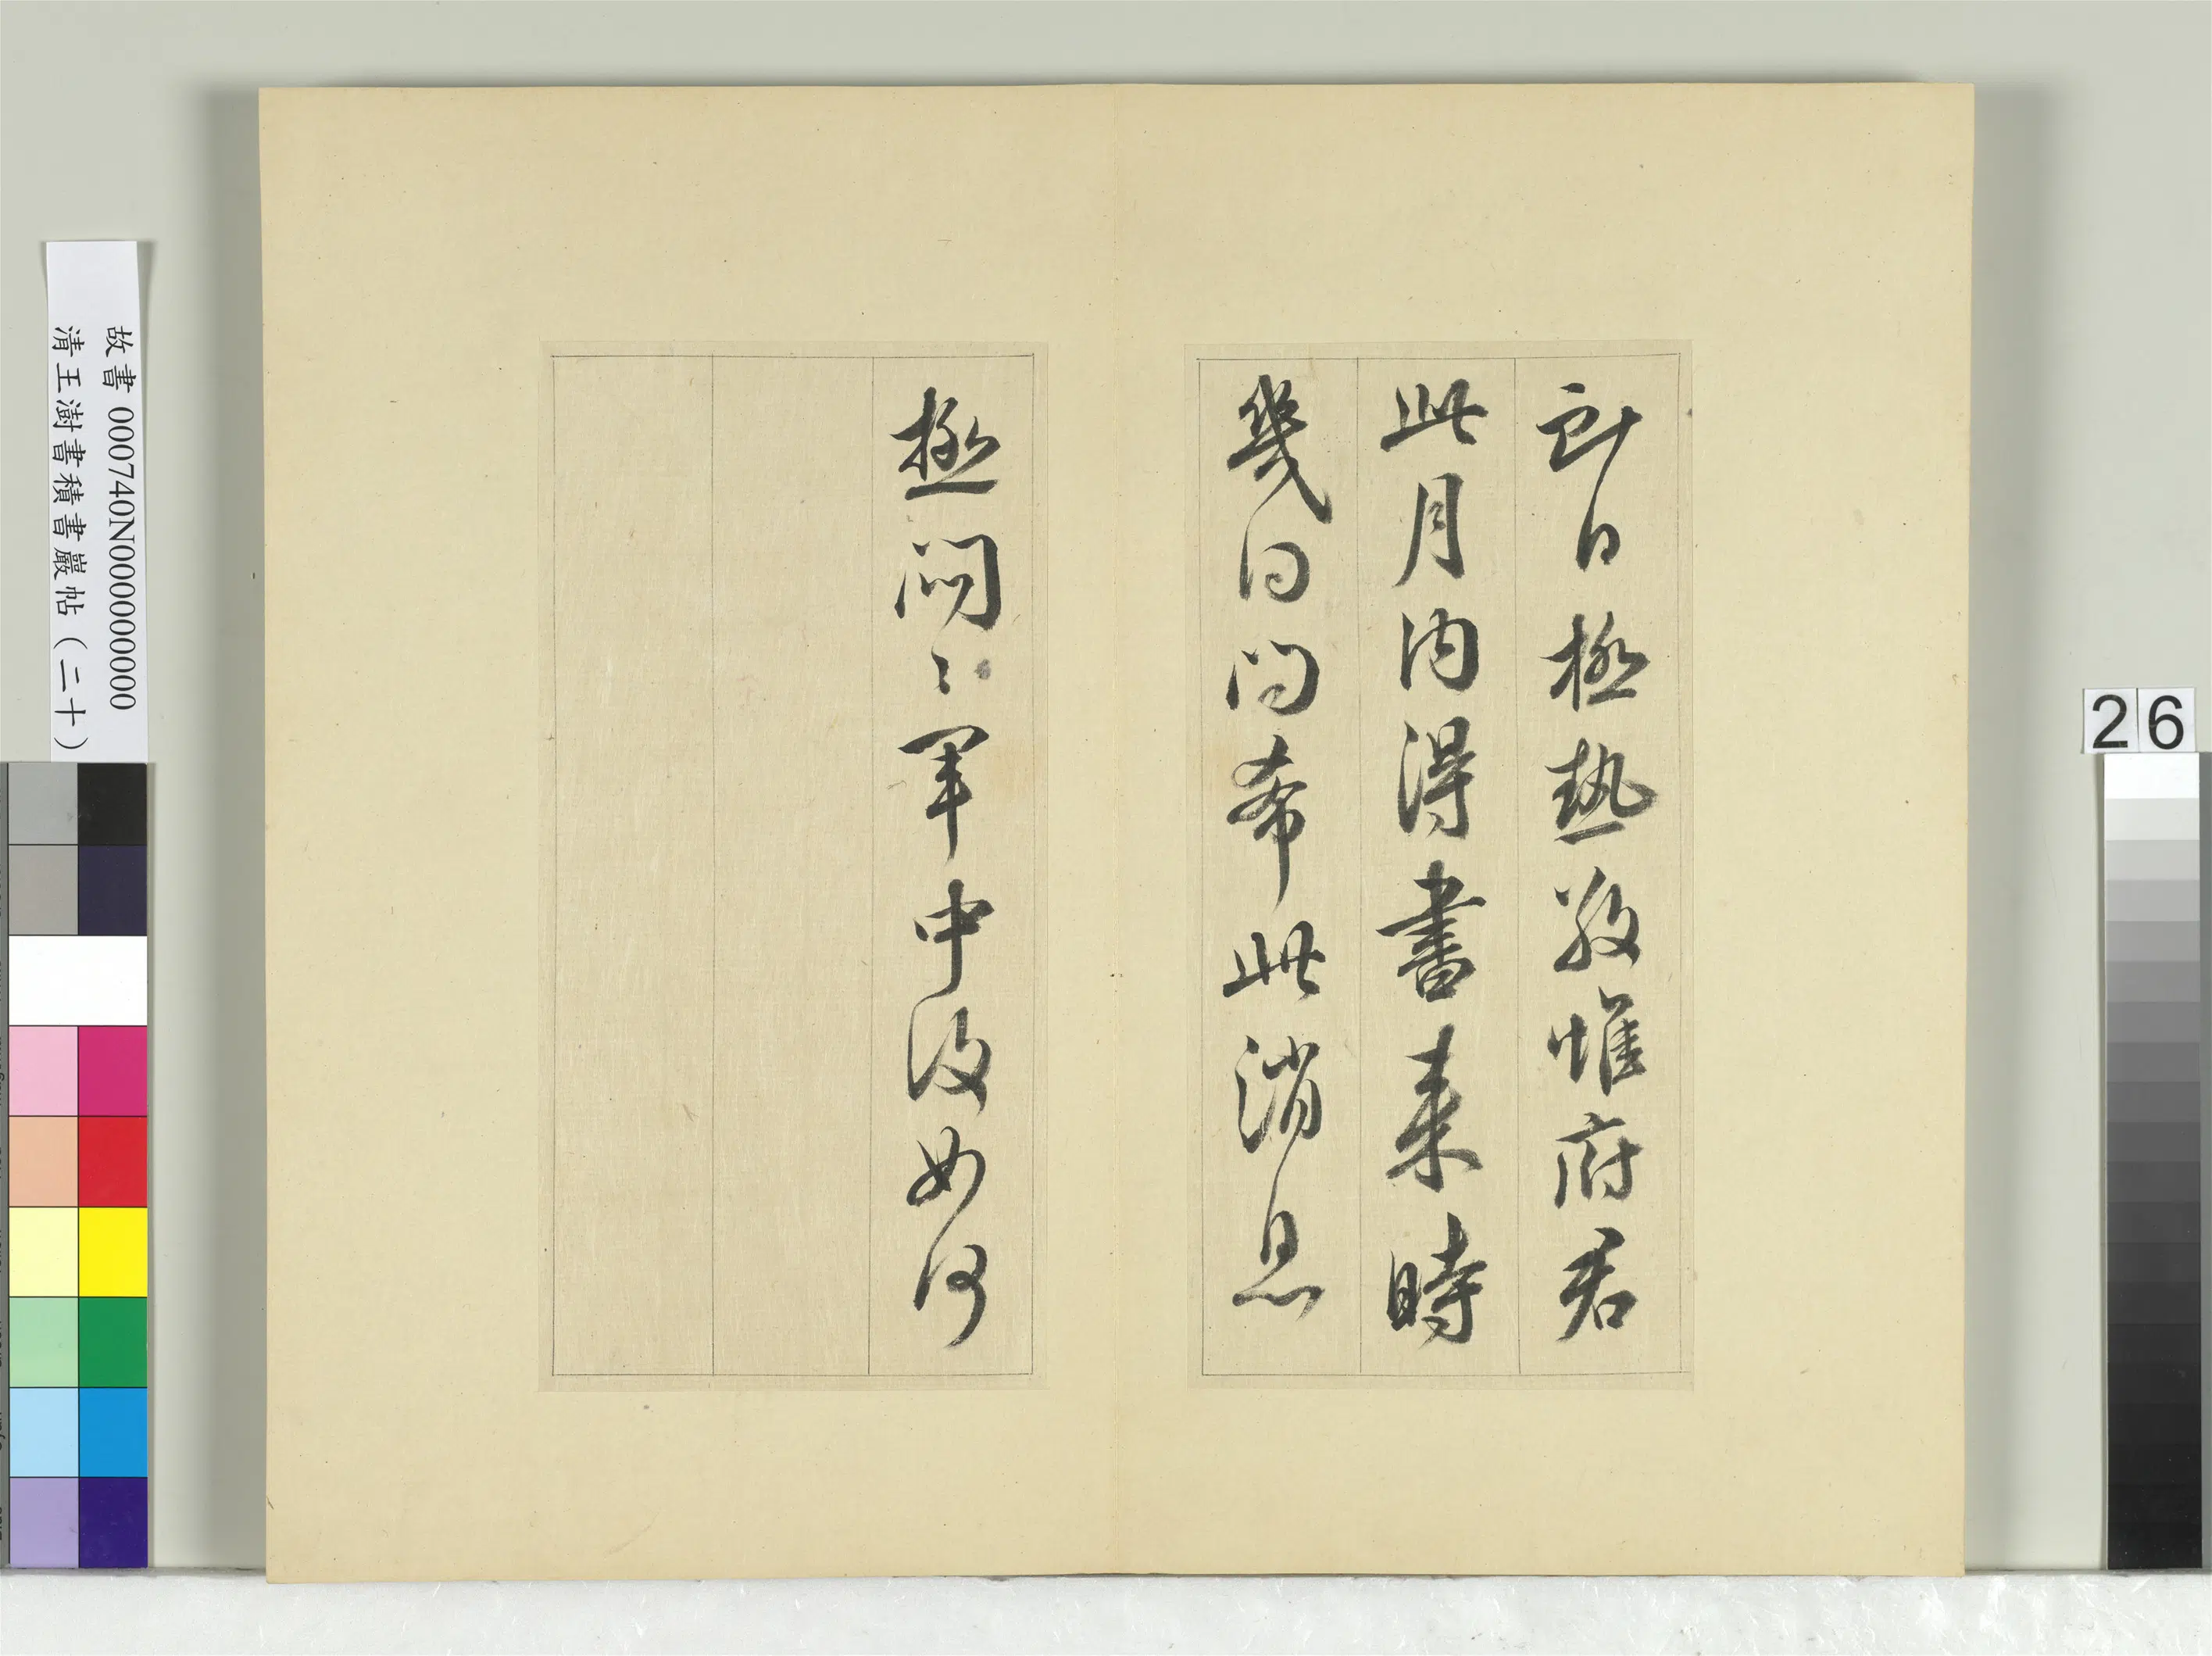 即日極熱敬惟府君
此月內得書來時
幾日問希此消息
極悶〻軍中復如何
故書 000740N000000000
清王澍書積書巖帖（二十）
26